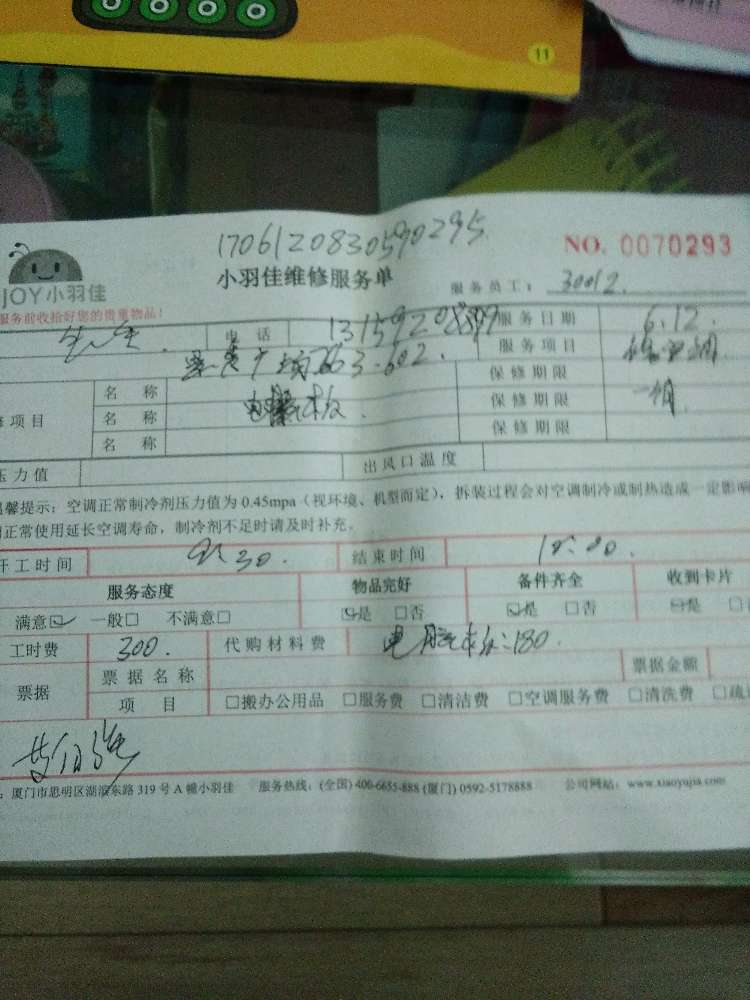 11
1706120830590295
NO. 0070293
小羽佳维修服务单
服务员工： 30012.
JOY小羽佳
服务前收拾好您的贵重物品！
电 话 13159208899 服务日期 6.12.
广场 3-602. 服务项目
名 称 保修期限
修项目 名 称 电脑板. 保修期限 一个月
名 称 保修期限
压力值 出风口温度
温馨提示：空调正常制冷剂压力值为 0.45mpa（视环境、机型而定），拆装过程会对空调制冷或制热造成一定影响
正常使用延长空调寿命，制冷剂不足时请及时补充。
开工时间 9:30. 结束时间 10:00.
服务态度 物品完好 备件齐全 收到卡片
满意☑ 一般□ 不满意□ ☑是 □否 ☑是 □否 ☑是 □
工时费 300. 代购材料费 电脑板:180.
票据 票据名称 票据金额
项 目 □搬办公用品 □服务费 □清洁费 □空调服务费 □清洗费 □疏
厦门市思明区湖滨东路 319 号 A 幢小羽佳 服务热线：(全国) 400-6655-888 (厦门) 0592-5178888 公司网站：www.xiaoyujia.com